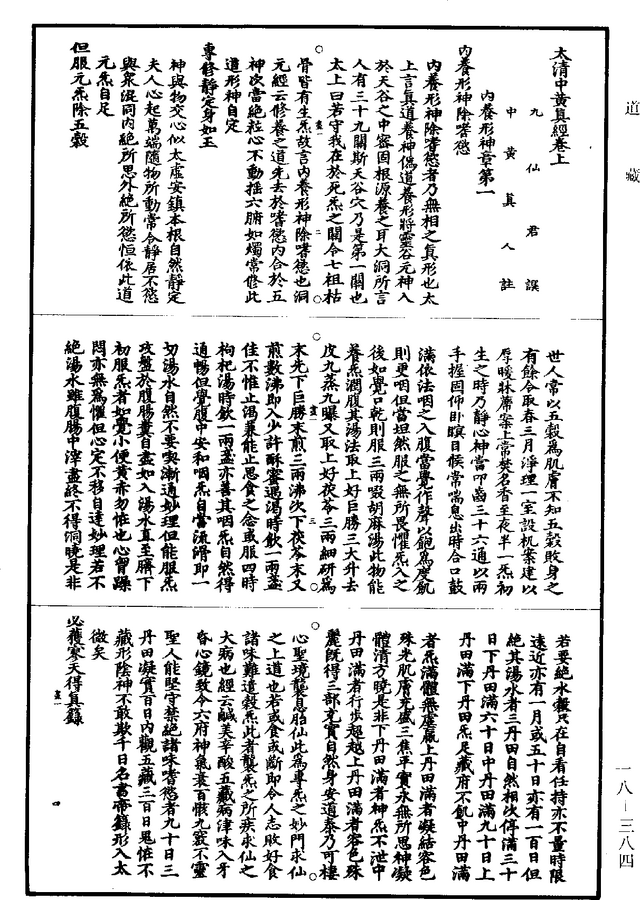 道藏
太清中黃真經卷上
九仙君譔
中黃真人註
內養形神章第一
內養形神除嗜慾
內養形神除嗜慾者乃無相之真形也太
上言真道養神偽道養形將靈谷元神入
於天谷之中密固根源養之耳大洞所言
人有三十九關斯天谷穴乃是第一關也
太上曰若守我在於死炁之關令七祖枯
骨皆有生炁故言內養形神除嗜慾也洞
元經云修養之道先去於嗜慾內合於五
神次當絕粒心不動搖六腑如燭常修此
道形神自定
專修靜定身如玉
神與物交心似太虛安鎮本根自然靜定
夫人心起萬端隨物所動常令靜居不慾
與衆混同內絕所思外絕所慾恒依此道
元炁自足
但服元炁除五穀
世人常以五穀為肌膚不知五穀敗身之
有餘今取春三月淨理一室設机案建以
厚暖牀蓐案上常焚名香至夜半一炁初
生之時乃靜心神當叩齒三十六通以兩
手握固仰卧瞑目候常喘息出時合口鼓
滿依法咽之入腹當覺作聲以飽為度飢
則更咽但當坦然服之無所畏懼炁入之
後如覺口乾則服三兩啜胡麻湯此物能
養炁潤腹其湯法取上好巨勝三大升去
皮九蒸九曝又取上好茯苓三兩細研為
末先下巨勝末煎三兩沸次下茯苓末又
煎數沸即入少許酥蜜遇渴時飲一兩盞
佳不惟止渴兼能止思食之念或服四時
枸杞湯時飲一兩盞亦善其咽炁自然得
通暢但覺腹中安和咽炁自當流滑即一
切湯水自然不要喫漸通妙理但能服炁
攻盤於腹腸糞自盡如入湯水直至臍下
初服炁者如覺小便黃赤勿怪也心胷躁
悶亦無為懼但心定不移自達妙理若不
絕湯水雖腹腸中滓盡終不得洞曉是非
若要絕水穀只在自看任持亦不量時限
遠近亦有一月或五十日亦有一百日但
絕其湯水者三丹田自然相次停滿三十
日下丹田滿六十日中丹田滿九十日上
丹田滿下丹田炁足藏府不飢中丹田滿
者炁滿體無虛羸上丹田滿者凝結容色
殊光肌膚充盛三焦平實永無所思神凝
體清方曉是非下丹田滿者神炁不泄中
丹田滿者行步超越上丹田滿者容色殊
麗旣得三部充實自然身安道泰乃可棲
心聖境襲息胎仙此為專炁之妙門求仙
之上道也若或食或斷即令人志敗好食
諸味難遣穀炁此者襲炁之所疾求仙之
大病也經云鹹美辛酸五藏病津味入牙
昏心鏡致令六府神炁衰百骸九竅不靈
聖人能堅守禁絕諸味嗜慾者九十日三
丹田凝實百日內觀五藏三百日鬼怪不
藏形陰神不敢欺千日名書帝錄形入太
微矣
必獲寥天得真籙
一八—三八四